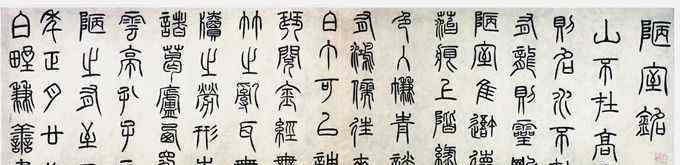 陋室銘
山不在高
則名水不
有龍則靈
陋室惟
苔痕上階
色入簾青談
有鴻儒往來
白丁可以調
琴閱金經無
竹之亂耳無
牘之勞形
諸葛廬西蜀
雲亭孔子
陋之有至
年正月廿
白野兼善書